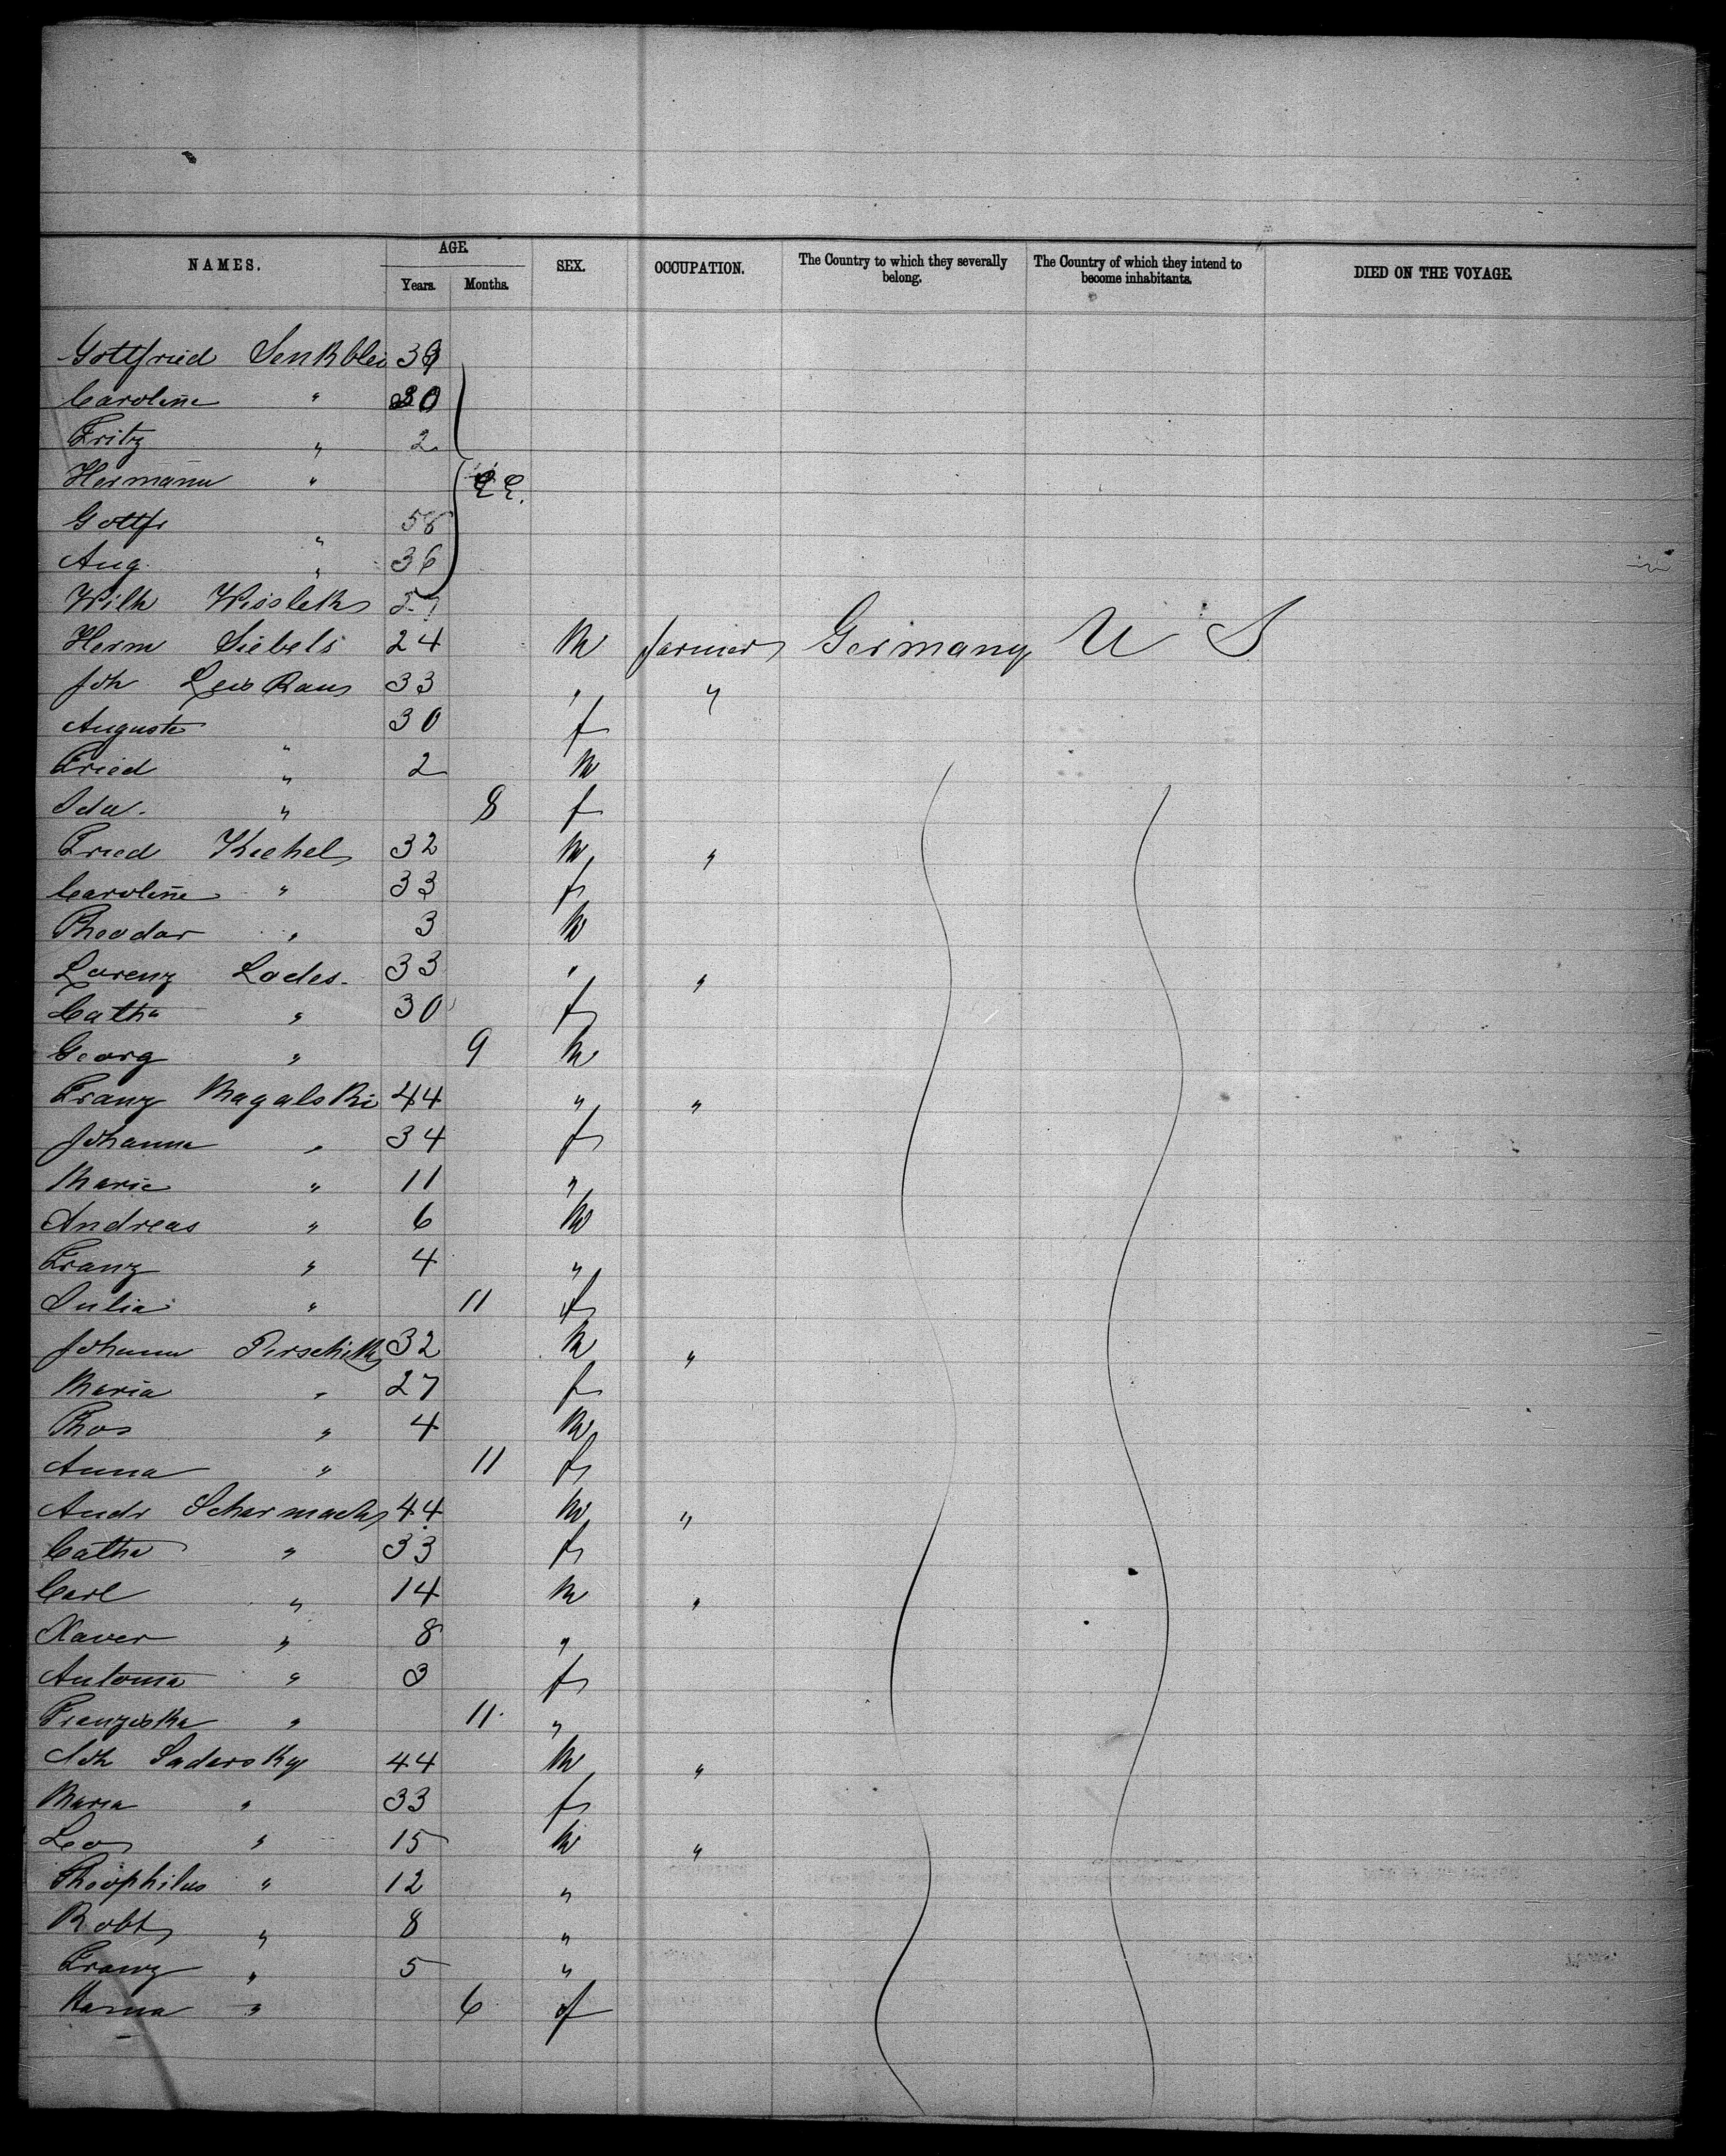 NAMES. AGE. Years. Months. SEX. OCCUPATION. The Country to which they severally belong. The Country of which they intend to become inhabitants. DIED ON THE VOYAGE.
Gottfried Senkblei 39
Caroline " 30
Fritz " 2
Hermann "
Gottfr " 58
Aug. " 36
Wilh
Herm Siebels 24 M farmer Germany U S
Joh 33 " "
Auguste " 30 f
Fried " 2 M
Ida. " 8 f
Fried Kiehel 32 M "
Caroline " 33 f
Theodor " 3 M
Lorenz Lodes. 33 " "
Catha " 30 f
Georg " 9 M
Franz Magalski 44 " "
Johanna " 34 f
Marie " 11 "
Andreas " 6 M
Franz " 4 "
Julia " 11 f
Johann Pirschik 32 M "
Maria " 27 f
Thos " 4 M
Anna " 11 f
Andr Scharmack 44 M "
Catha " 33 f
Carl " 14 M "
Xaver " 8 "
Antonia " 3 f
Franziska " 11 "
Joh Sadarsky 44 M "
Maria " 33 f
Leo " 15 M "
Theophilus " 12 "
Robt " 8 "
Franz " 5 "
" 6 f